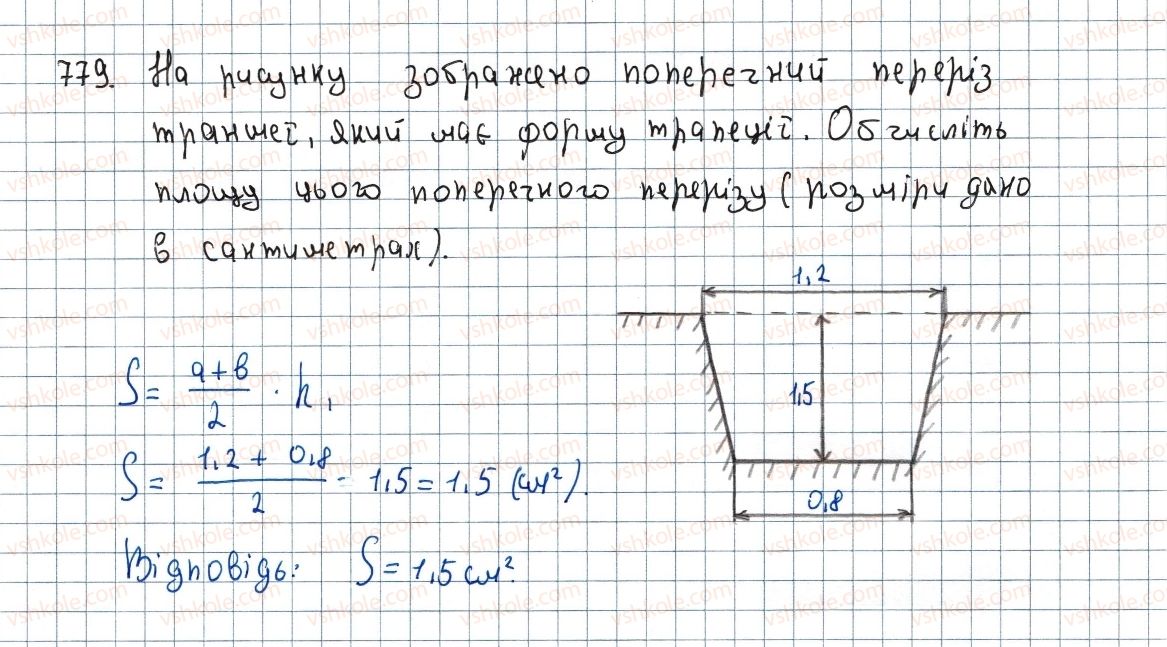 779. На рисунку зображено поперечний переріз
траншеї, який має форму трапеції. Обчисліть
площу цього поперечного перерізу (розміри дано
в сантиметрах).
1,2
1,5
0,8
S = a+b/2 · h,
S = 1,2 + 0,8/2 · 1,5 = 1,5 (см²).
Відповідь: S = 1,5 см².